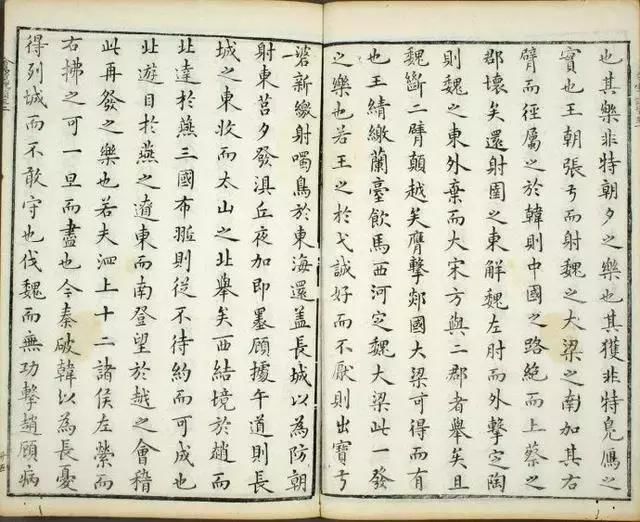 也其樂非特朝夕之樂也其獲非特鳧鴈之
實也王朝張弓而射魏之大梁之南加其右
臂而徑屬之於韓則中國之路絶而上蔡之
郡壞矣還射圉之東解魏左肘而外擊定陶
則魏之東外棄而大宋方與二郡者舉矣且
魏斷二臂顛越矣膺擊郯國大梁可得而有
也王綪繳蘭臺飲馬西河定魏大梁此一發
之樂也若王之於弋誠好而不厭則出寶弓
碆新繳射噣鳥於東海還蓋長城以為防朝
射東莒夕發浿丘夜加即墨顧據午道則長
城之東收而太山之北舉矣西結境於趙而
北達於燕三國布則從不待約而可成也
北遊目於燕之遼東而南登望於越之會稽
此再發之樂也若夫泗上十二諸侯左縈而
右拂之可一旦而盡也今秦破韓以為長憂
得列城而不敢守也伐魏而無功擊趙顧病